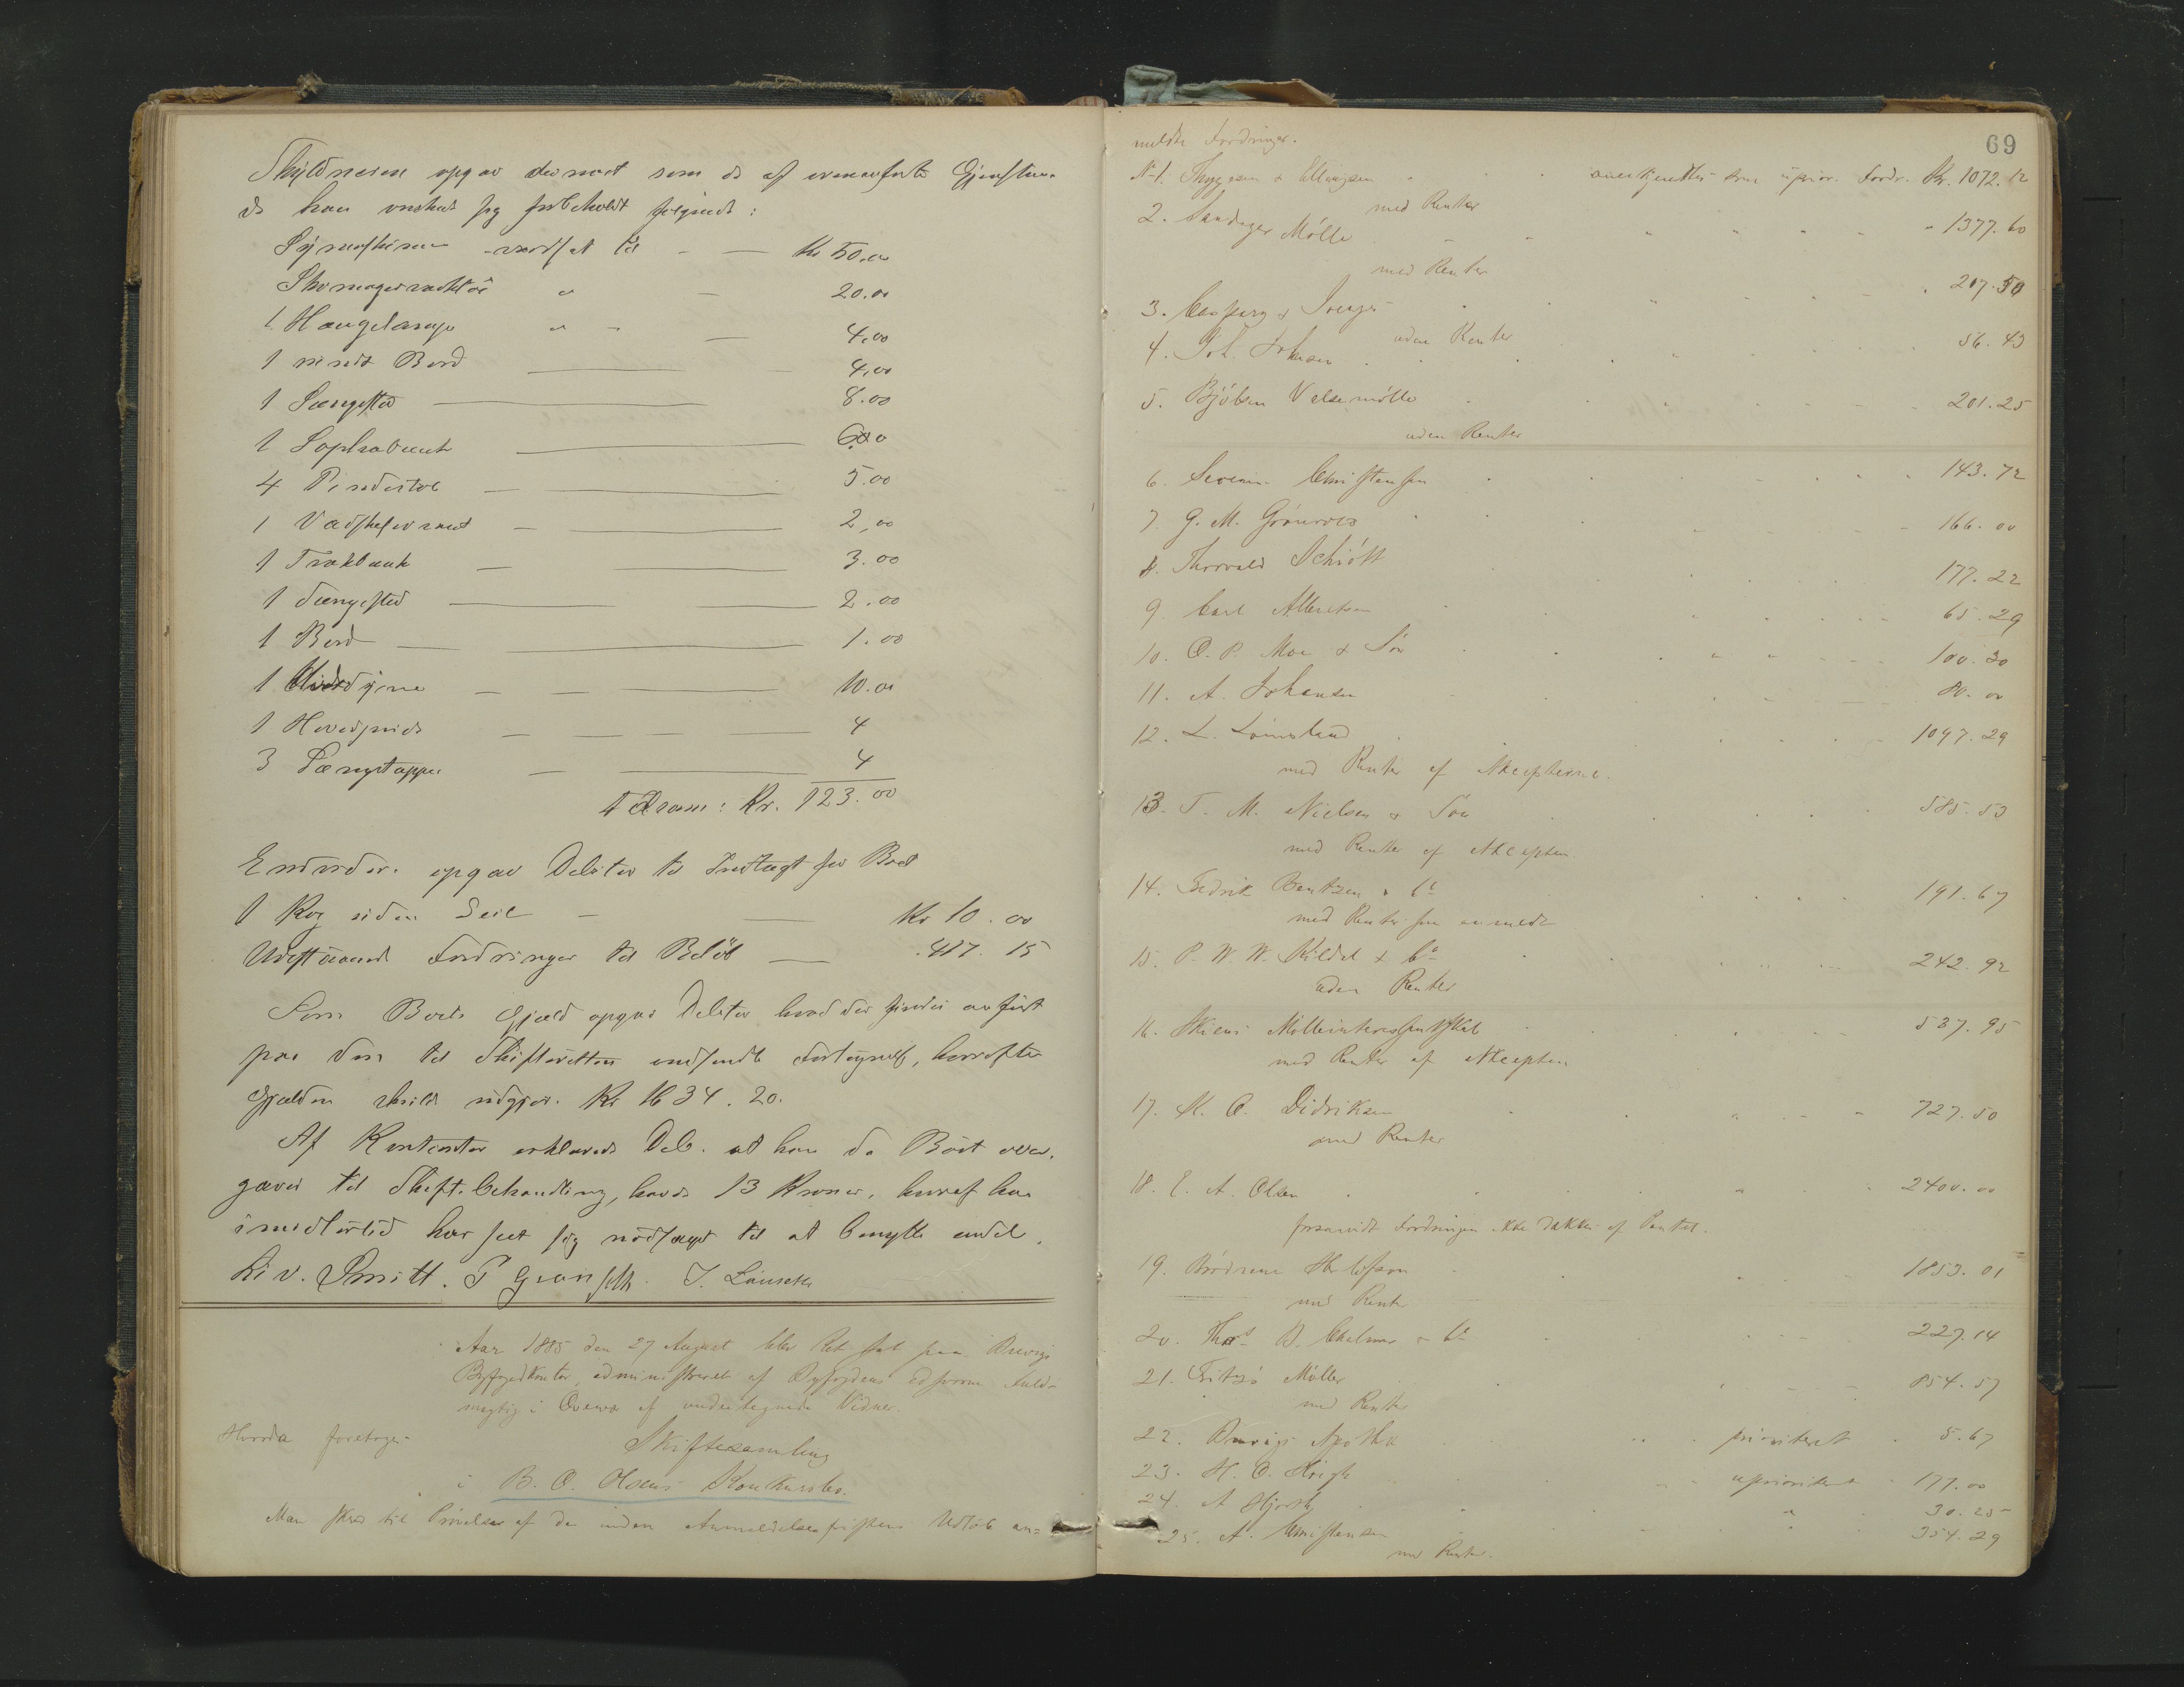 Skyldneren opgav dernæst som de af ovenanførte Gjenstan-
de han ønsket sig forbeholdt følgende:
Symaskinen værdsat til Kr 50.00
Skomagerverktøi " 20.00
1 Hængelampe " 4.00
1 rundt Bord 4.00
1 Sængested 8.00
1 Sophabænk 6.00
4 Pindestole 5.00
1 Vadskeservant 2,00
1 Trækbænk 3.00
1 Sængested 2.00
1 Bord 1.00
1 Underdyne 10.00
1 Hovedpude 4
3 Sængetæpper 4
Tilsam: Kr. 123.00
Endvidere opgav Debitor til Indtægt for Boet
1 Kog siden Seil Kr 10.00
Udestaaende Fordringer til Beløb 417.15
Som Boets Gjæld opgav Debitor hvad der findes anført
paa den til Skifteretten indsendte Fortegnelse, hvorefter
Gjælden skulde udgjøre Kr 1634.20.
Af Kontanter erklærede Deb. at han da Boet over-
gaves til Skiftebehandling, havde 13 Kroner, hvoraf han
imidlertid har seet sig nødsaget til at benytte endel.
Liv. Smitt. P Grønseth. J. Lønseth
Aar 1885 den 27 August blev Ret sat paa Brevigs
Byfogedkontor, administreret af Byfogdens edsvorne Fuld-
mægtig i Overvær af undertegnede Vidner.
Hvorda foretoges
Skiftesamling
i B. O. Olsens Konkursbo.
Man skred til Prøvelse af de inden Anmeldelsesfristens Udløb an-
69
meldte Fordringer.
No 1. Thygesen & Ellingsen anerkjendtes som uprior. Fordr. Kr. 1072.12
med Renter
2. Sandager Mølle " 1377.60
med Renter
3. Caspary & 207.50
uden Renter
4. Joh. Johnsen 56.43
5. Bjølsen Valsemølle 201.25
uden Renter
6. Severin Christensen 143.72
7. G. M. Grønvold 166.00
8. Thorvald Schiøtt 177.22
9. Carl Albretsen 65.29
10. O. P. Moe & Søn 100.30
11. A. Johansen 80.00
12. L. Lømsland 1097.29
med Renter af Akcepterne.
13. T. M. Nielsen & Søn 585.53
med Renter af Akcepten
14. Fredrik Bentzen & Co 191.67
med Renter som anmeldt
15. P. W. W. Kildal & Co 242.92
uden Renter
16. Skiens Mølleinteressentskab 537.95
med Renter af Akcepten
17. H. O. Didriksen 727.50
med Renter
18. E. A. Olsen 2400.00
forsaavidt Fordringen ikke dækkes af Pantet.
19. Brødrene Herlofson 1853.01
med Renter
20. Thos B. & Co 227.14
21. Fritzø Møller 854.57
med Renter
22. Brevigs Apothek prioriteret 5.67
23. H. O. uprioritert 177.00
24. A Hjorth " 30.25
25. A. Christensen " 354.29
med Renter.